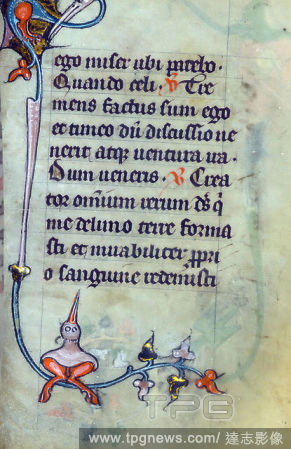 ego miser ubi parebo.
Quando celi. V Tre
mens factus sum ego
et timeo dū discussio ue
nerit atq̨ uentura ira.
Dum ueneris. V Crea
tor omīum rerum dꝰ q̄
me de limo terre forma
sti et mirabiliter ꝓpri
o sanguine redemisti
TPG
www.tpgnews.com/ 達志影像